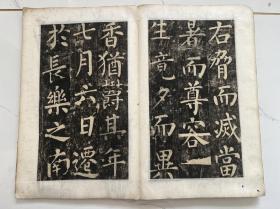 右脅而滅當
暑而尊容一
生竟夕而異
香猶欝其年
七月六日遷
於長樂之南